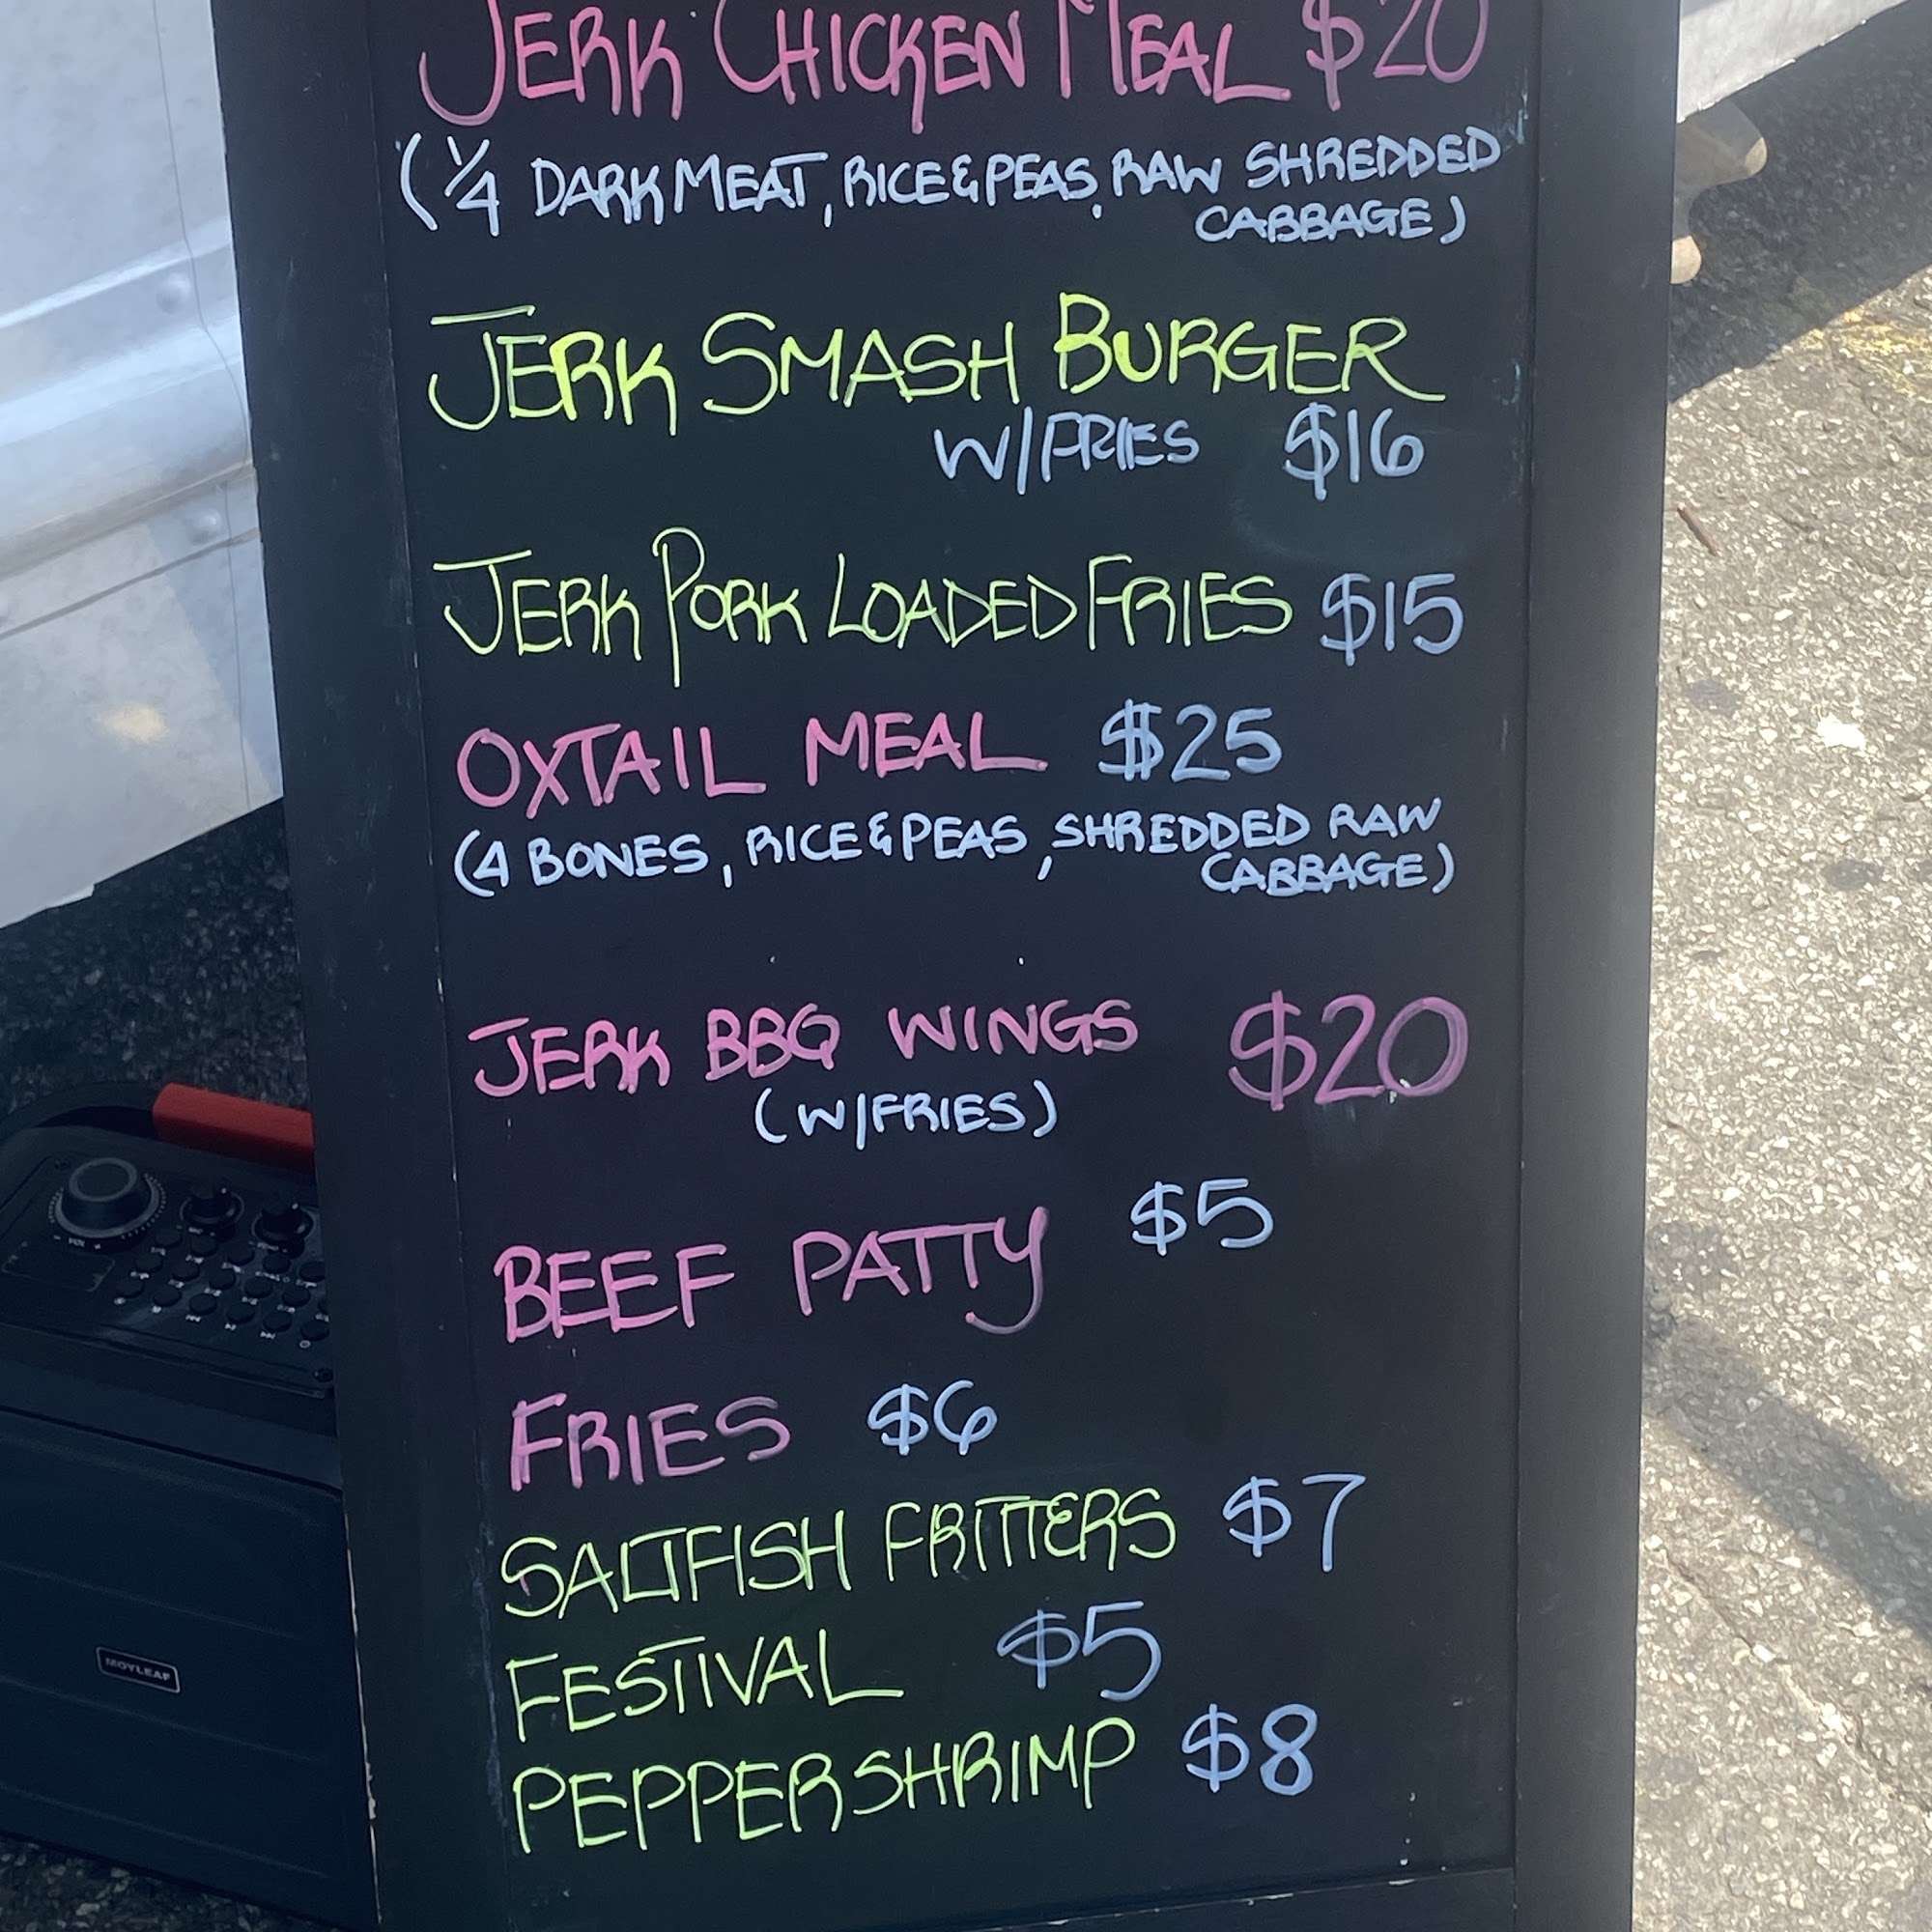 JERK CHICKEN MEAL $20
(1/4 DARK MEAT, RICE & PEAS, RAW SHREDDED
CABBAGE)
JERK SMASH BURGER
W/FRIES $16
JERK PORK LOADED FRIES $15
OXTAIL MEAL $25
(4 BONES, RICE & PEAS, SHREDDED RAW
CABBAGE)
JERK BBQ WINGS $20
(W/FRIES)
BEEF PATTY $5
FRIES $6
SALTFISH FRITTERS $7
FESTIVAL $5
PEPPER SHRIMP $8
MOYLEAF